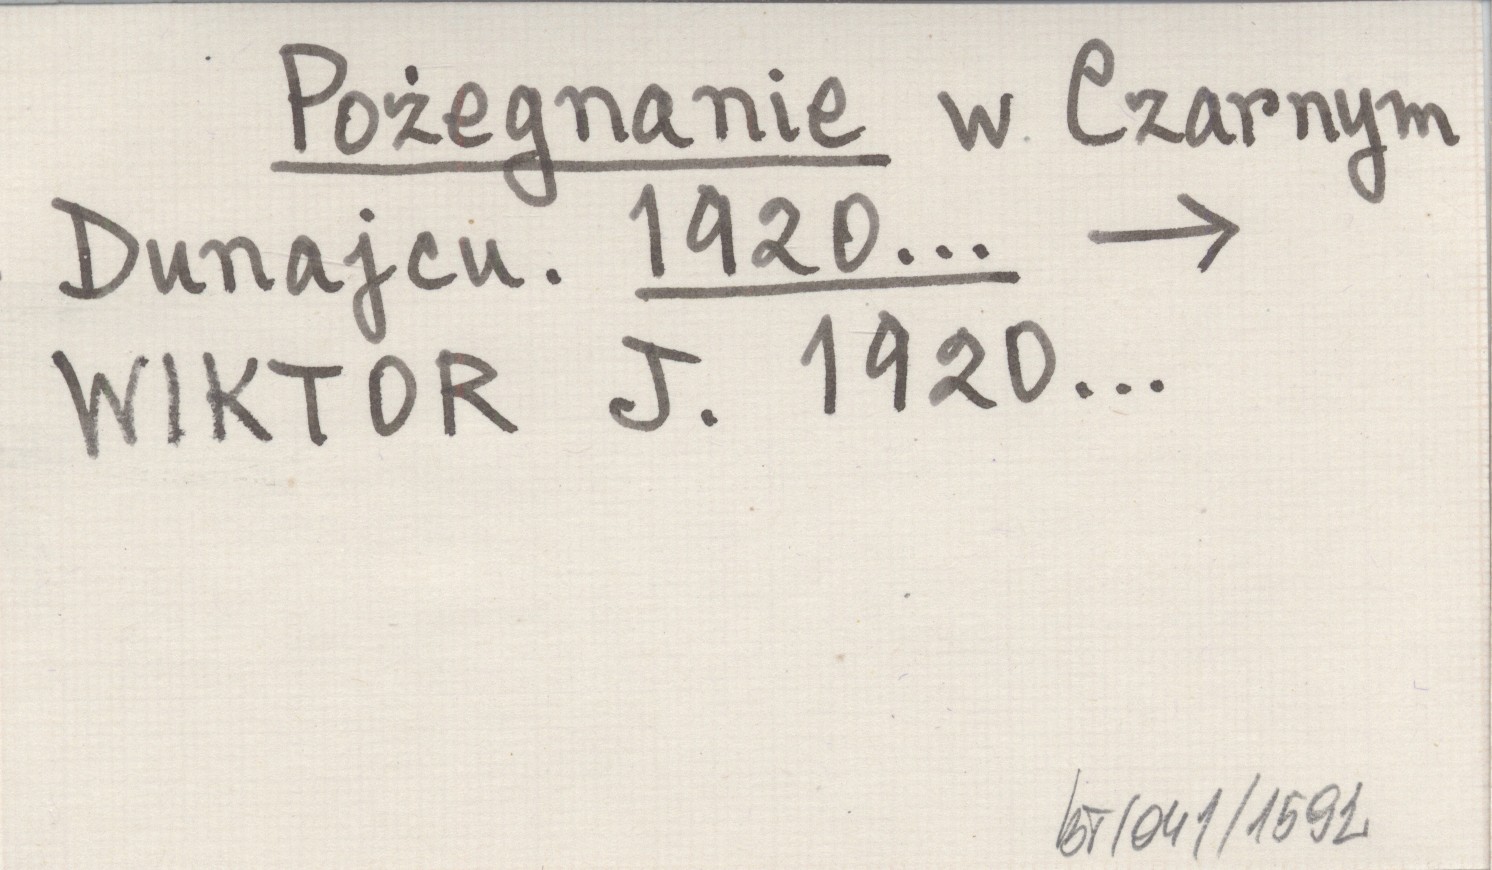 Pożegnanie w Czarnym
Dunajcu. 1920... →
WIKTOR J. 1920...
BT/041/1592